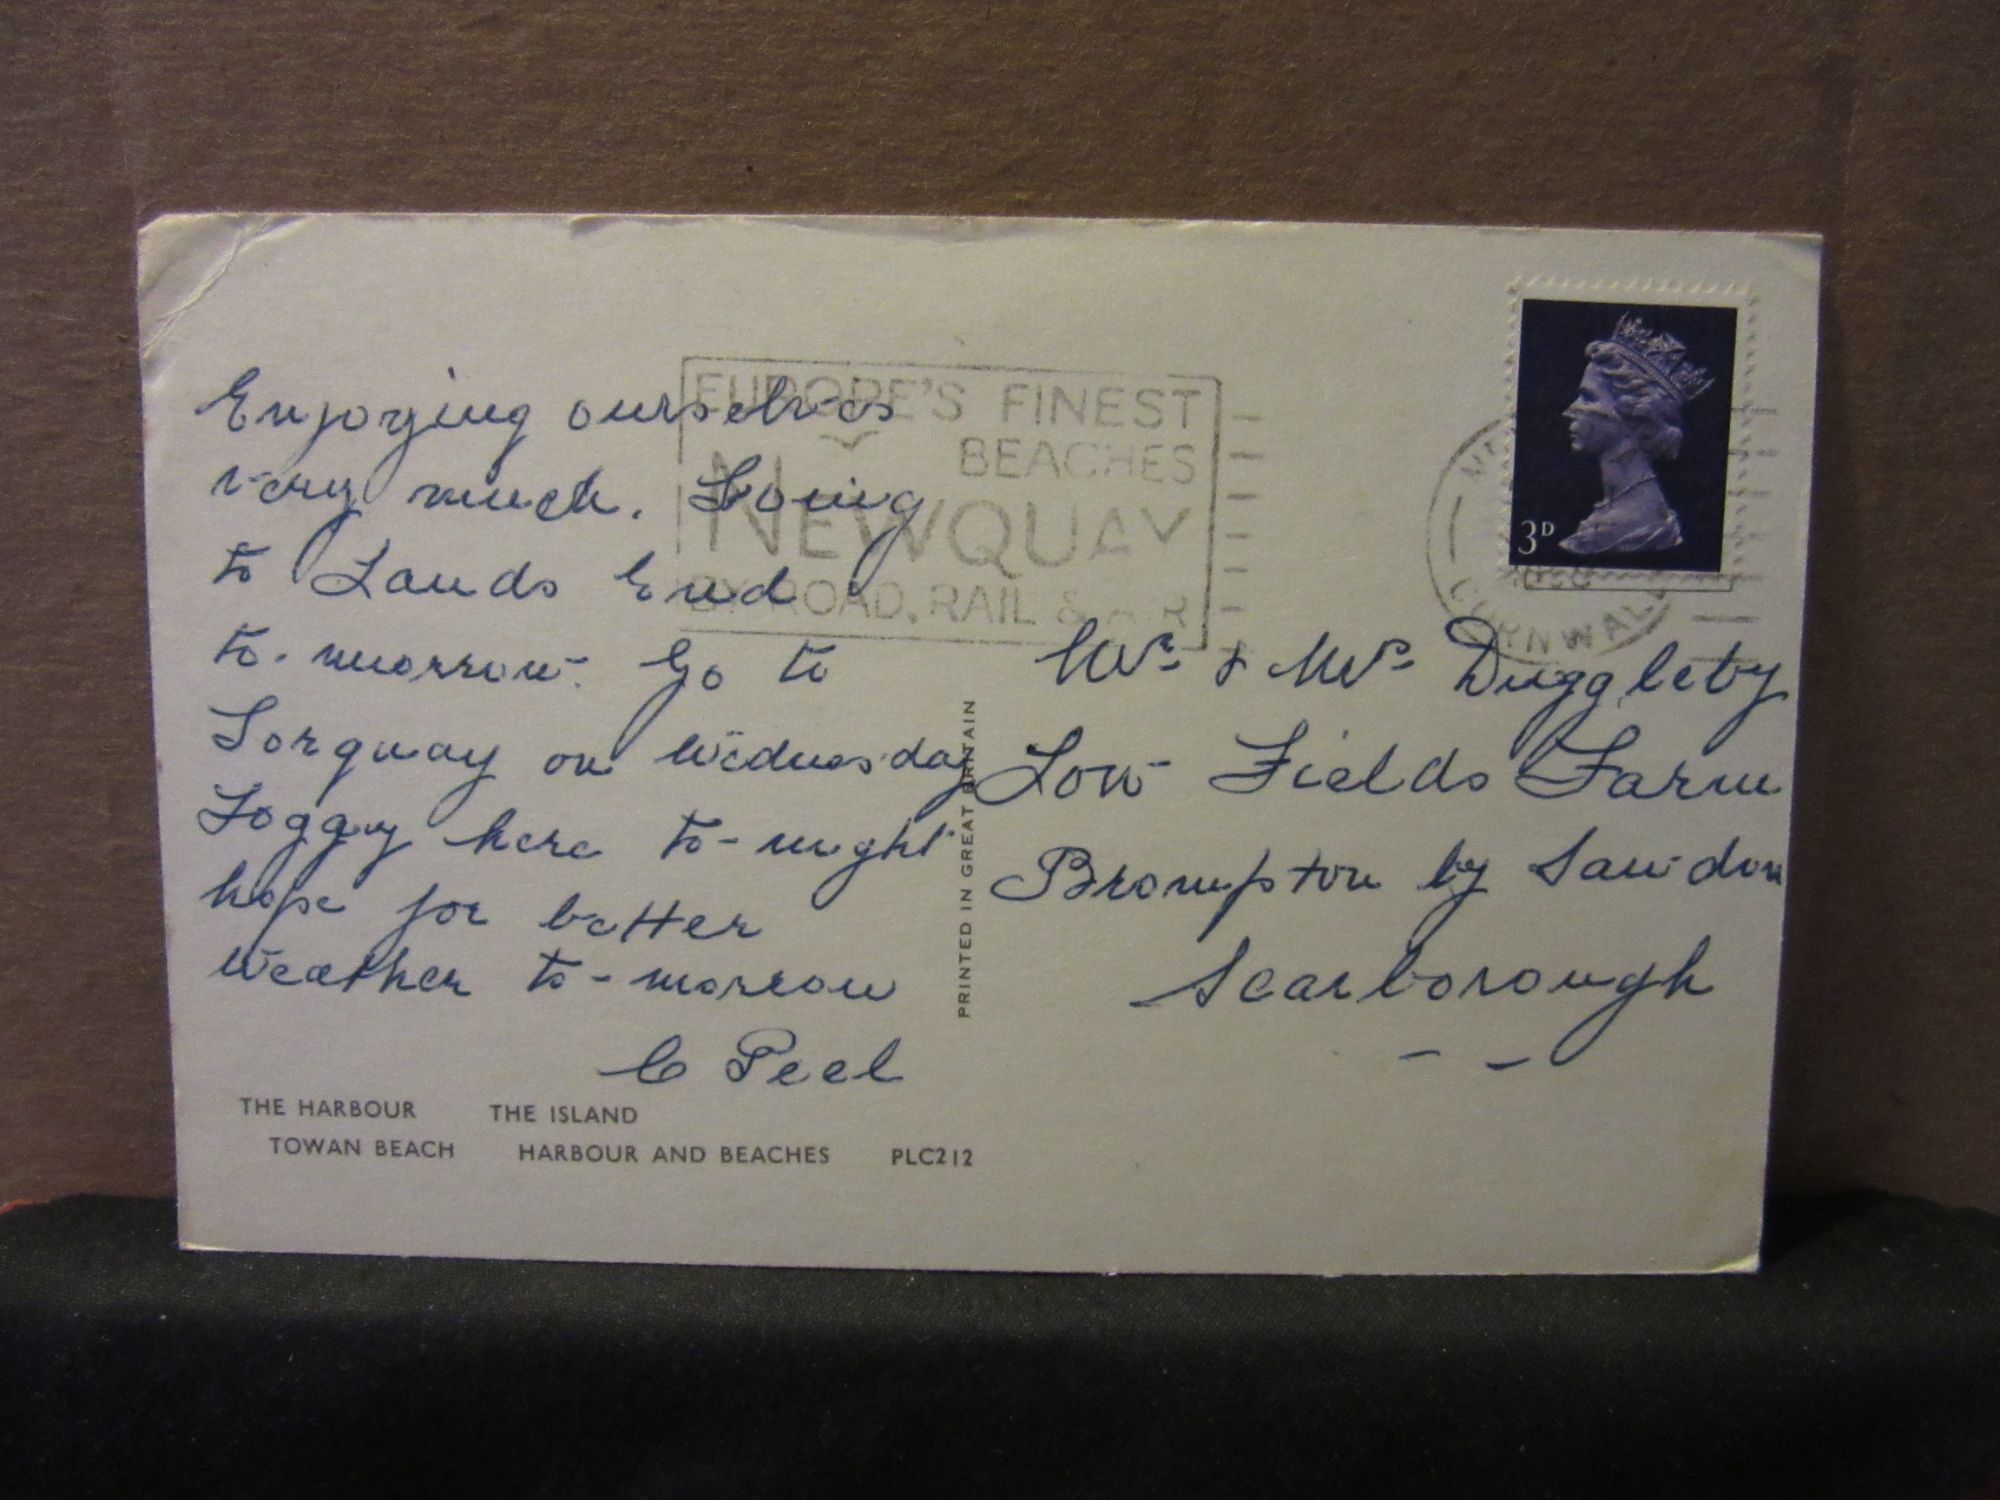 Enjoying ourselves
very much. Going
to Lands End
to-morrow. Go to
Torquay on Wednesday
Foggy here to-night
hope for better
weather to-morrow
C Peel
THE HARBOUR THE ISLAND
TOWAN BEACH HARBOUR AND BEACHES PLC212
PRINTED IN GREAT BRITAIN
EUROPE'S FINEST
BEACHES
NEWQUAY
BY ROAD, RAIL & AIR
CORNWALL
3D
Mr & Mrs Duggleby
Low Fields Farm
Brompton by Sawdon
Scarborough